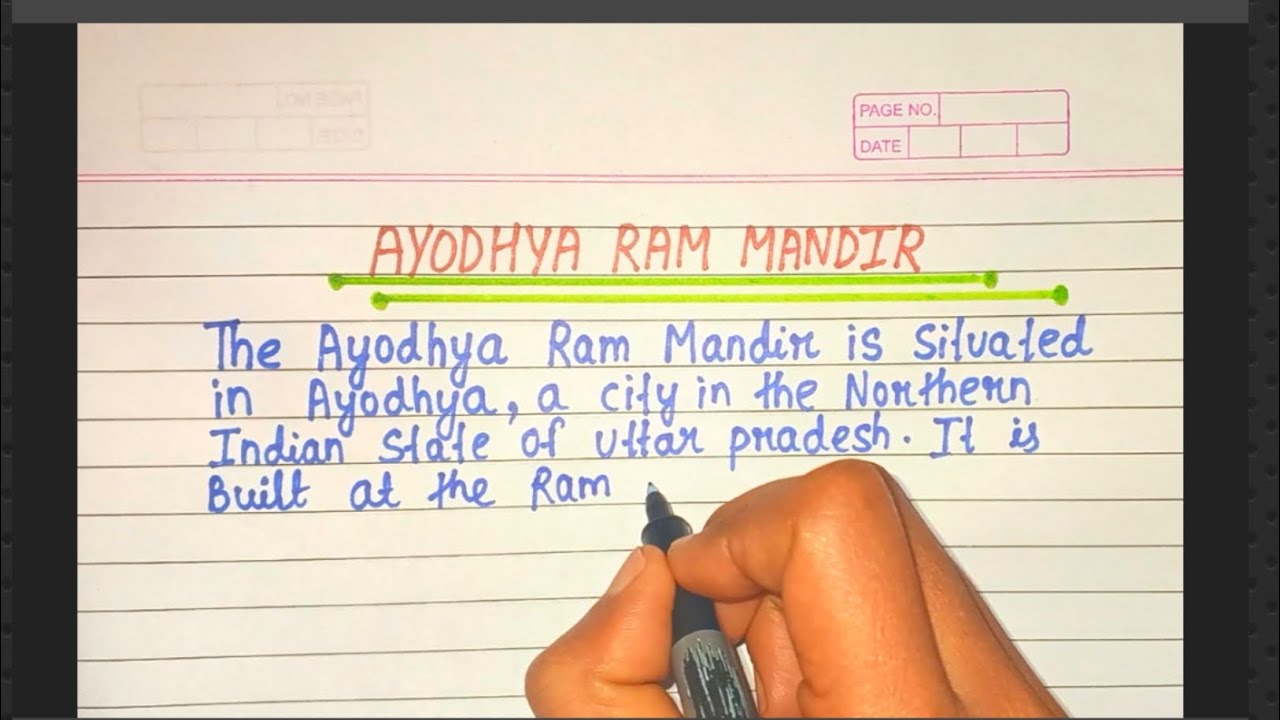 PAGE NO.
DATE
AYODHYA RAM MANDIR
The Ayodhya Ram Mandir is Situated
in Ayodhya, a city in the Northern
Indian State of Uttar pradesh. It is
Built at the Ram